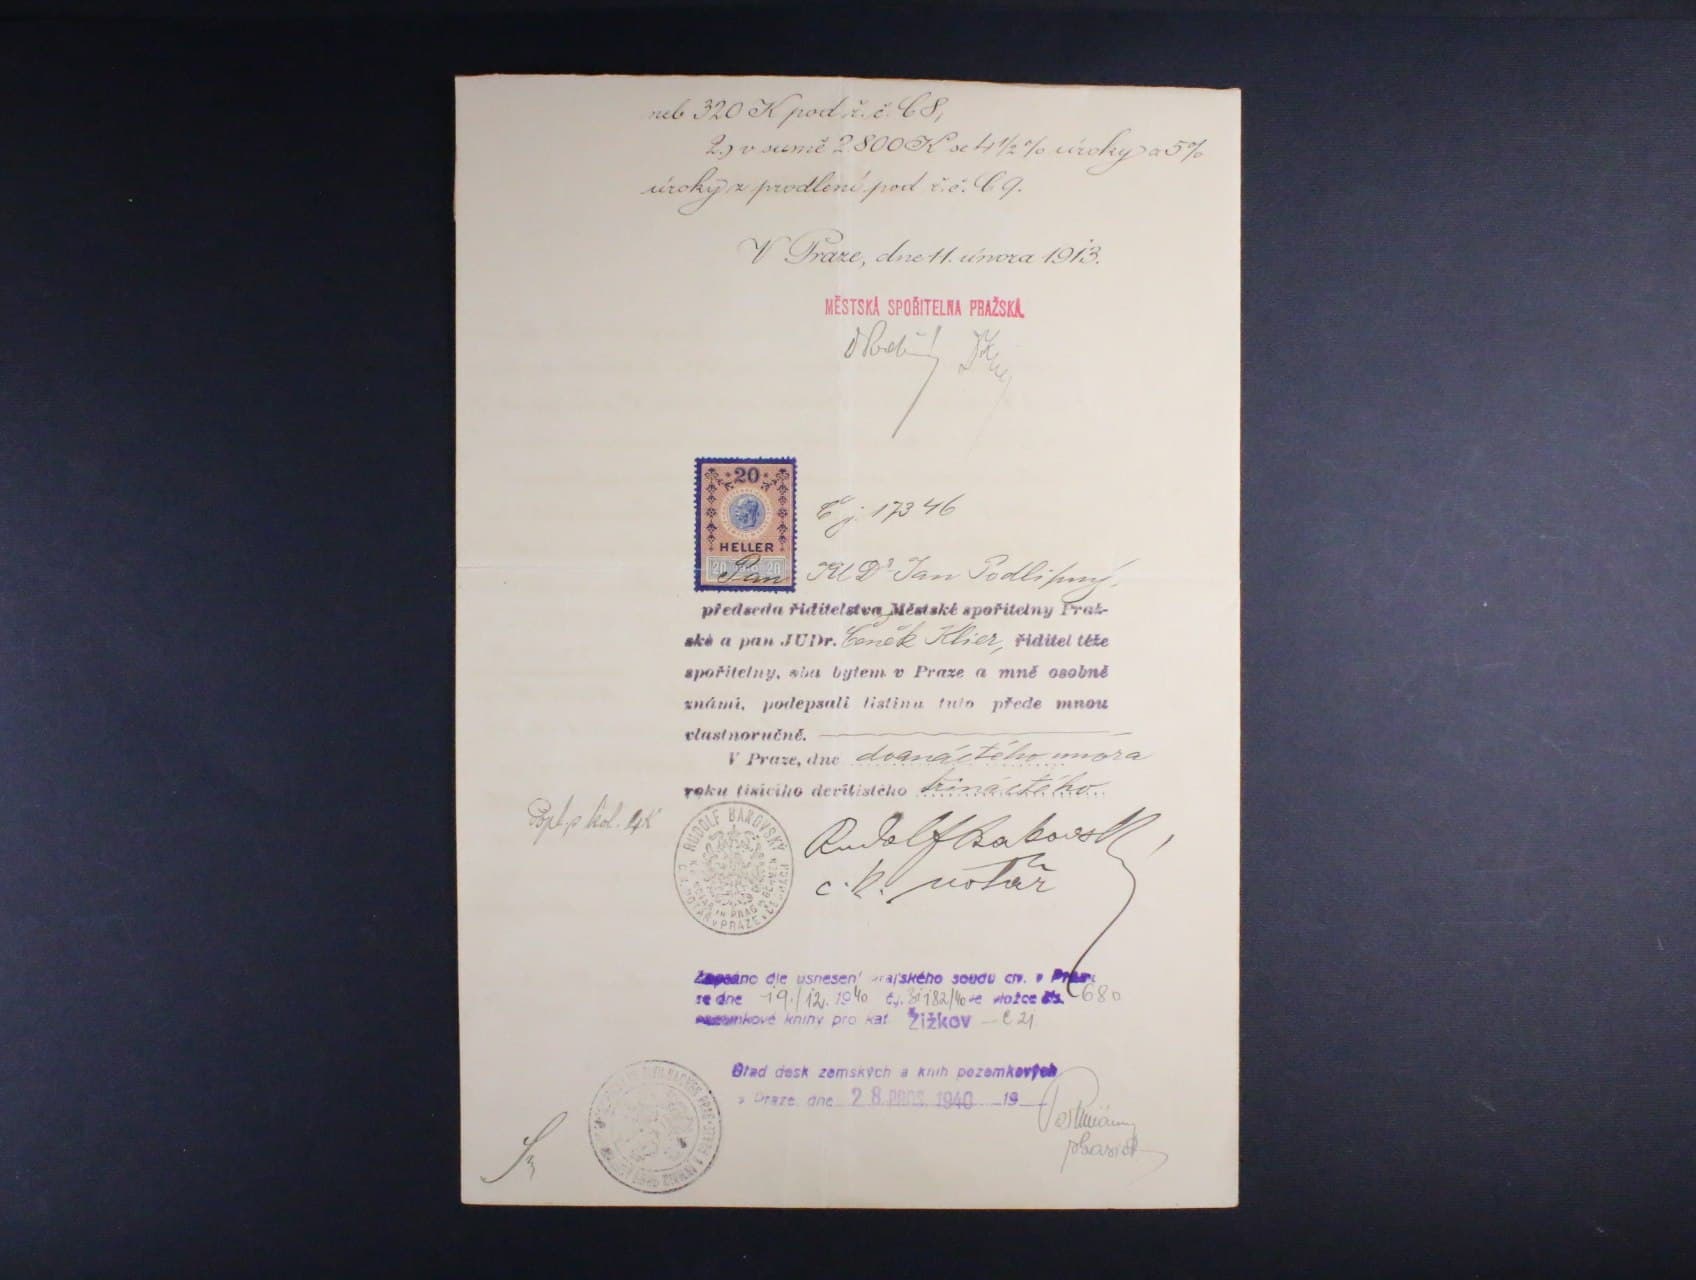 neb 320 K pod ř. č. C 8,
2.) v sumě 2800 K se 4 1/2 % úroky a 5%
úroky z prodlení pod ř. č. C 9.
V Praze, dne 11. února 1913.
MĚSTSKÁ SPOŘITELNA PRAŽSKÁ.
20
HELLER
20 20
Č j. 17346
Pan JUDr Jan Podlipný,
předseda řiditelstva Městské spořitelny Praž-
ské a pan JUDr. Čeněk Klier, řiditel téže
spořitelny, oba bytem v Praze a mně osobně
známí, podepsali listinu tuto přede mnou
vlastnoručně.
V Praze, dne dvanáctého února
roku tisícího devítistého třináctého.
Popl. p. kol. 4K
RUDOLF BAKOVSKÝ
PRAZE
Rudolf Bakovský
c. k. notář
Zapsáno dle usnesení krajského soudu civ. v Praze
ze dne 19./12. 1940 č.j. 31182/40 ve vložce čís. 680
pozemkové knihy pro kat. Žižkov - C 21
Úřad desk zemských a knih pozemkových
v Praze dne 28. PROS. 1940 19